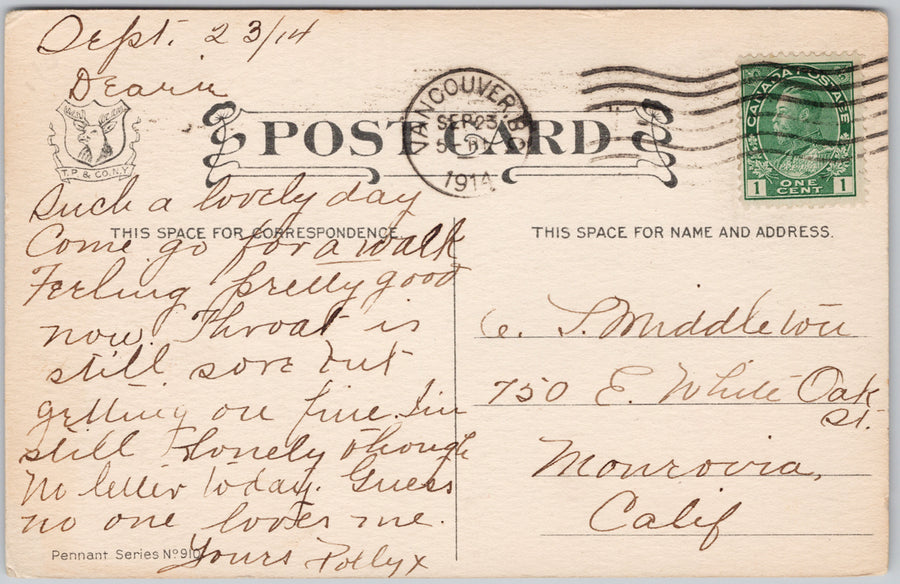 Sept. 23/14
Dearie
T.P. & CO. N.Y.
POST CARD
VANCOUVER. B.C.
SEP 23
1914
CANADA POSTAGE
1 ONE CENT 1
Such a lovely day
THIS SPACE FOR CORRESPONDENCE
Come go for a walk
Feeling pretty good
now. Throat is
still sore but
getting on fine. I'm
still lonely though
No letter today. Guess
no one loves me.
Yours Polly x
Pennant Series No 910
THIS SPACE FOR NAME AND ADDRESS.
C. S. Middleton
750 E. White Oak
St.
Monrovia,
Calif